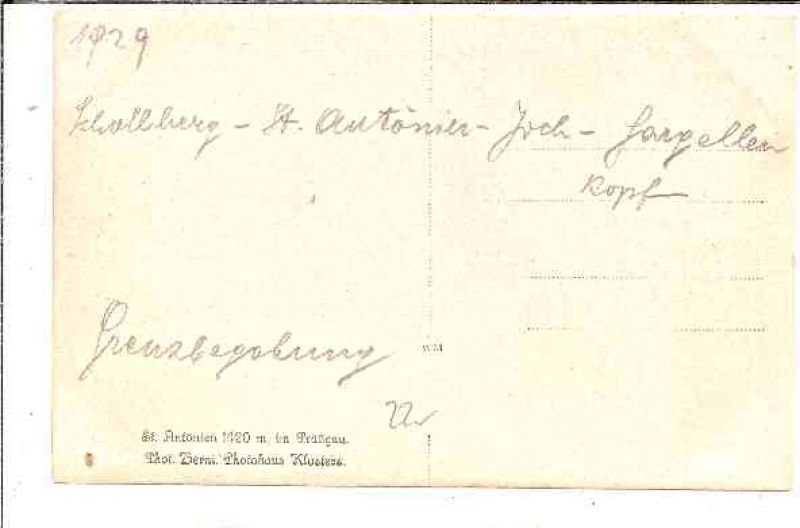 1929
Schollberg - St. Antönier - Joch - Gargellen
Kopf
Grenzbegehung
WM
St. Antönien 1420 m, im Prätigau.
Phot. Berni, Photohaus Klosters.